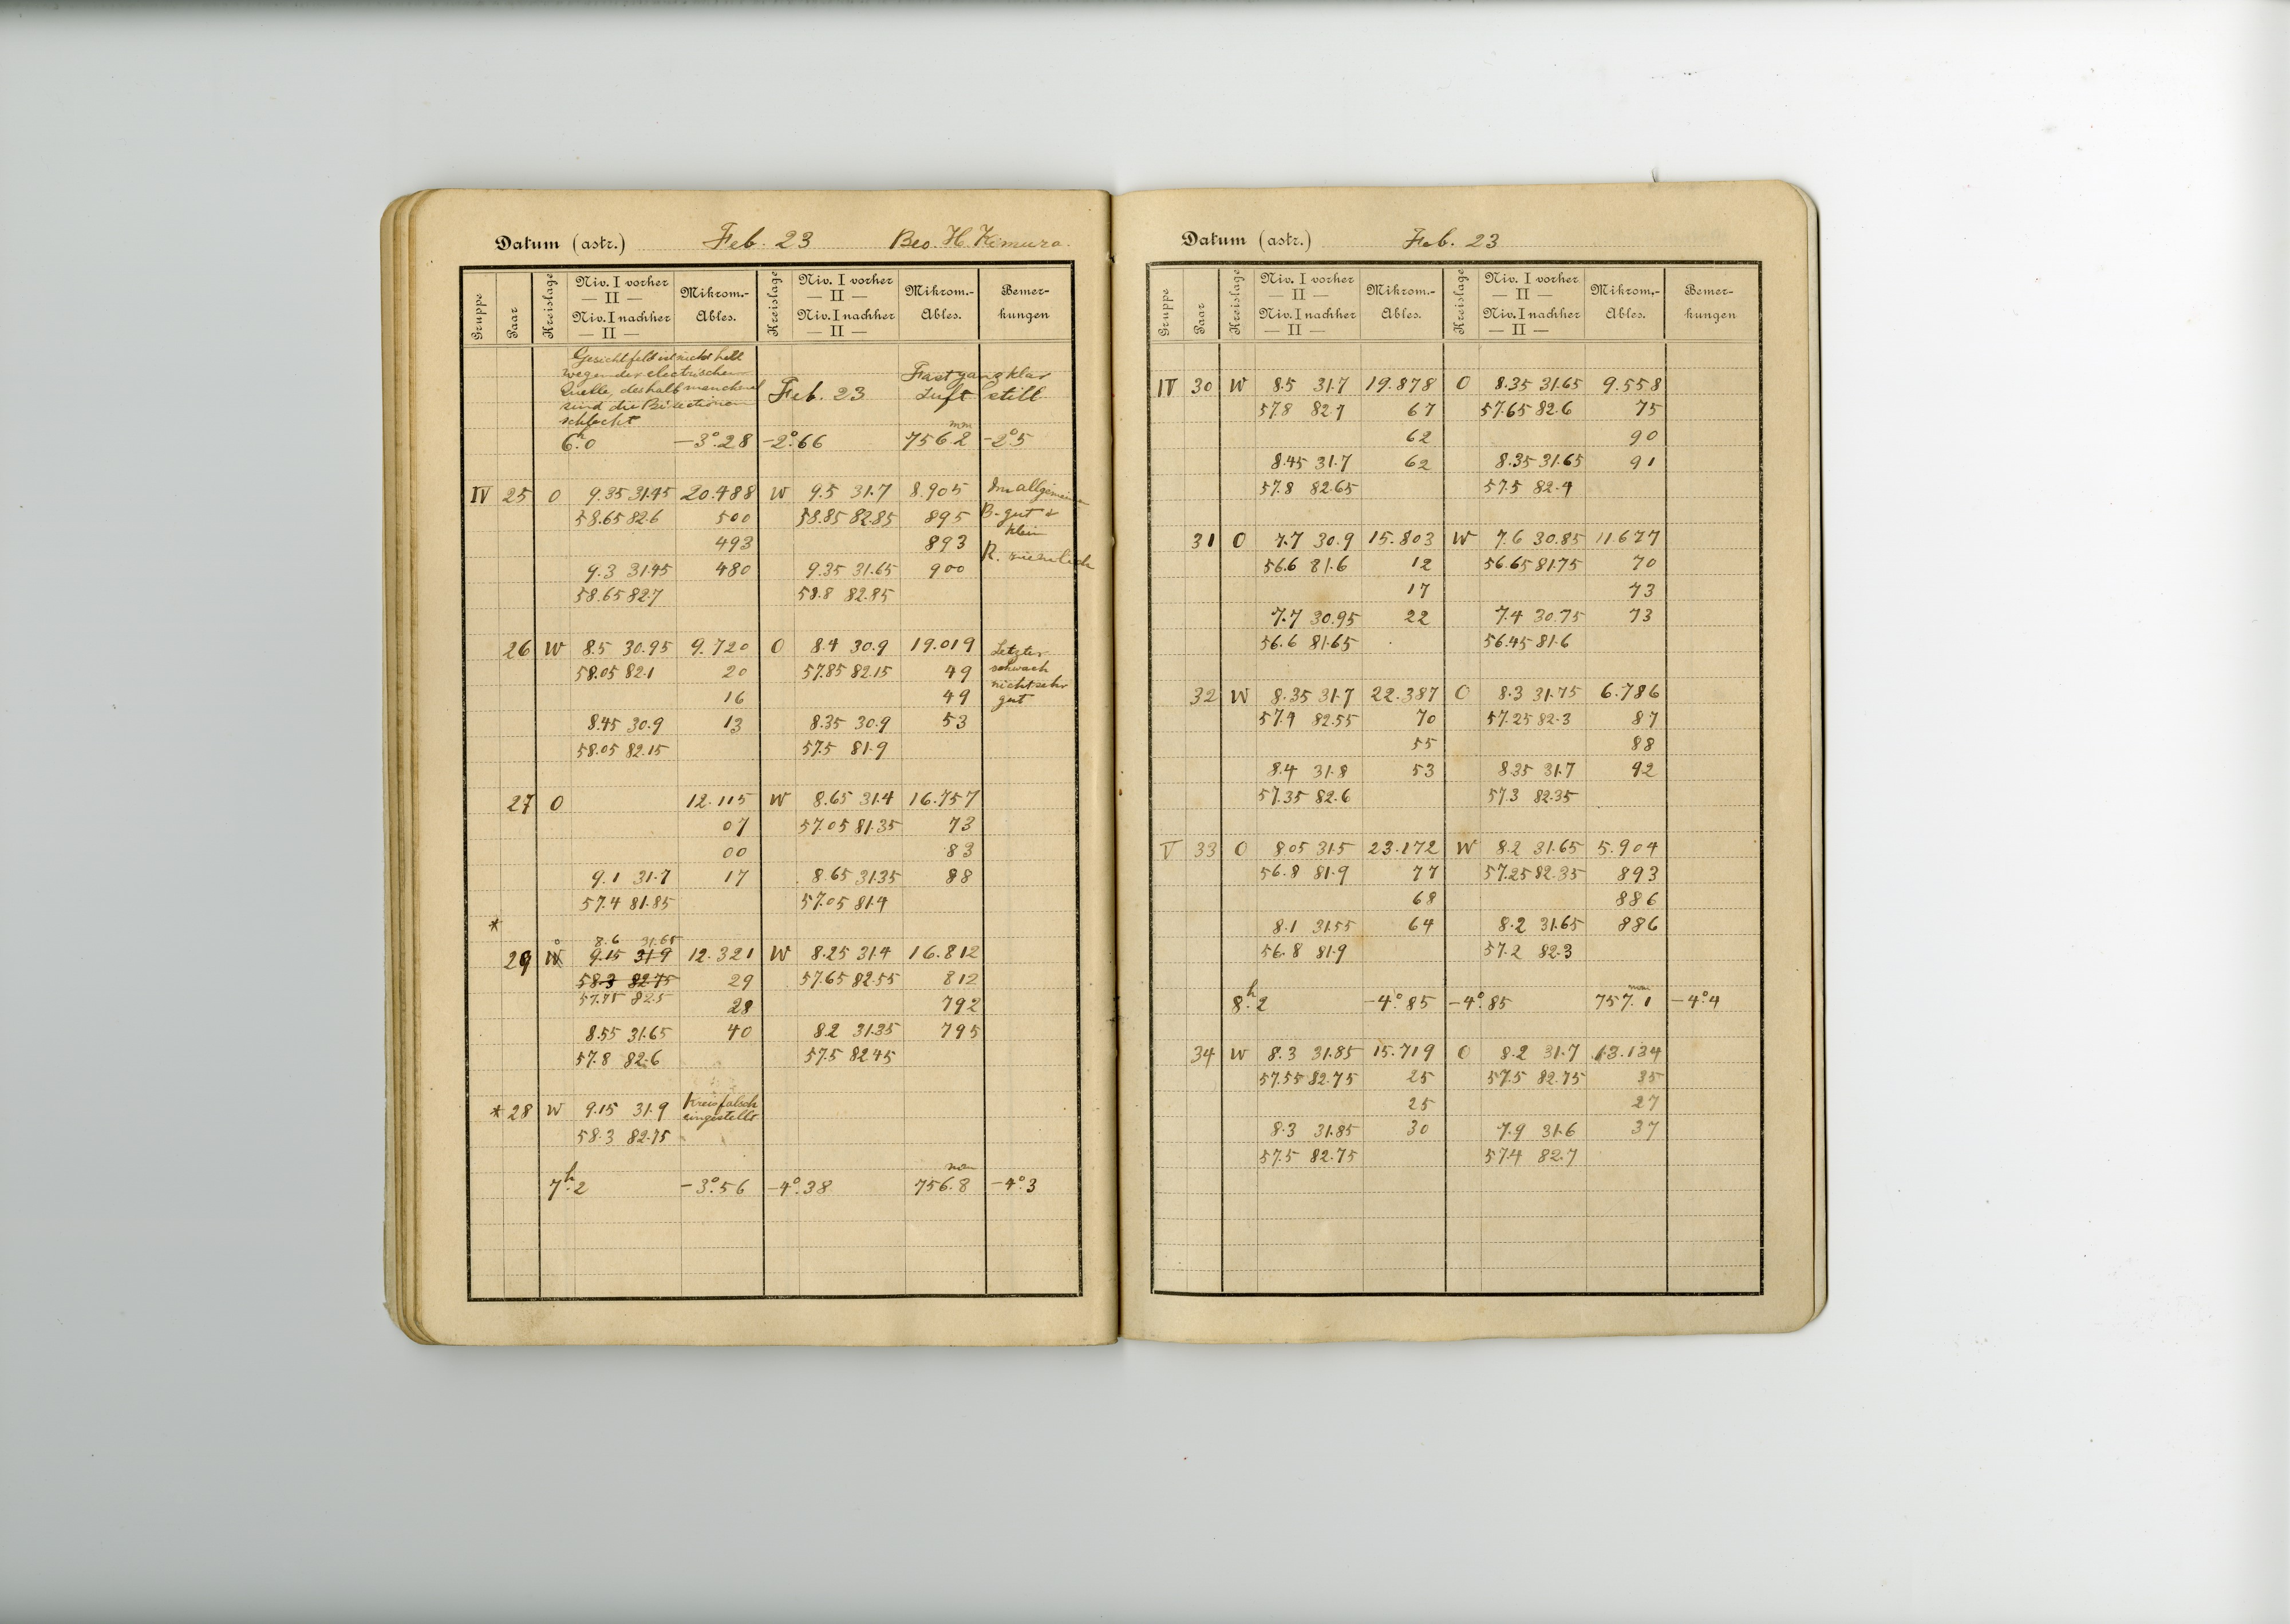 Datum (astr.) Feb. 23 Beo. H. Kimura.
Gruppe Paar Kreislage Niv. I vorher — II — Niv. I nachher — II — Mikrom.-Ables. Kreislage Niv. I vorher — II — Niv. I nachher — II — Mikrom.-Ables. Bemer-kungen
Gesichtfeld ist nicht hell
wegen der electrischen
Quelle, deshalb manchmal
sind die Bisectionen
schlecht
Feb. 23 Fast ganz klar
Luft still
6h.0 −3°.28 −2°.66 756.2 mm −2°.5
IV 25 O 9.35 31.45 20.488 W 9.5 31.7 8.905 Im allgemeinen
58.65 82.6 500 58.85 82.85 895 B. gut &
493 893 klein
9.3 31.45 480 9.35 31.65 900 R. ziemlich
58.65 82.7 58.8 82.85
26 W 8.5 30.95 9.720 O 8.4 30.9 19.019 Letzter
58.05 82.1 20 57.85 82.15 49 schwach
16 49 nicht sehr
gut
8.45 30.9 13 8.35 30.9 53
58.05 82.15 57.5 81.9
27 O 12.115 W 8.65 31.4 16.757
07 57.05 81.35 73
00 83
9.1 31.7 17 8.65 31.35 88
57.4 81.85 57.05 81.4
*
8.6 31.65
29 W O 9.15 31.9 12.321 W 8.25 31.4 16.812
58.3 82.75 29 57.65 82.55 812
57.75 82.5
28 792
8.55 31.65 40 8.2 31.35 795
57.8 82.6 57.5 82.45
* 28 W 9.15 31.9 Kreis falsch
eingestellt
58.3 82.75
7h.2 −3°.56 −4°.38 756.8 mm −4°.3
Datum (astr.) Feb. 23
Gruppe Paar Kreislage Niv. I vorher — II — Niv. I nachher — II — Mikrom.-Ables. Kreislage Niv. I vorher — II — Niv. I nachher — II — Mikrom.-Ables. Bemer-kungen
IV 30 W 8.5 31.7 19.878 O 8.35 31.65 9.558
57.8 82.7 67 57.65 82.6 75
62 90
8.45 31.7 62 8.35 31.65 91
57.8 82.65 57.5 82.4
31 O 7.7 30.9 15.803 W 7.6 30.85 11.677
56.6 81.6 12 56.65 81.75 70
17 73
7.7 30.95 22 7.4 30.75 73
56.6 81.65 56.45 81.6
32 W 8.35 31.7 22.387 O 8.3 31.75 6.786
57.4 82.55 70 57.25 82.3 87
55 88
8.4 31.8 53 8.35 31.7 92
57.35 82.6 57.3 82.35
V 33 O 8.05 31.5 23.172 W 8.2 31.65 5.904
56.8 81.9 77 57.25 82.35 893
68 886
8.1 31.55 64 8.2 31.65 886
56.8 81.9 57.2 82.3
8h.2 −4°.85 −4°.85 757.1 mm −4°.4
34 W 8.3 31.85 15.719 O 8.2 31.7 13.134
57.55 82.75 25 57.5 82.75 35
25 27
8.3 31.85 30 7.9 31.6 37
57.5 82.75 57.4 82.7